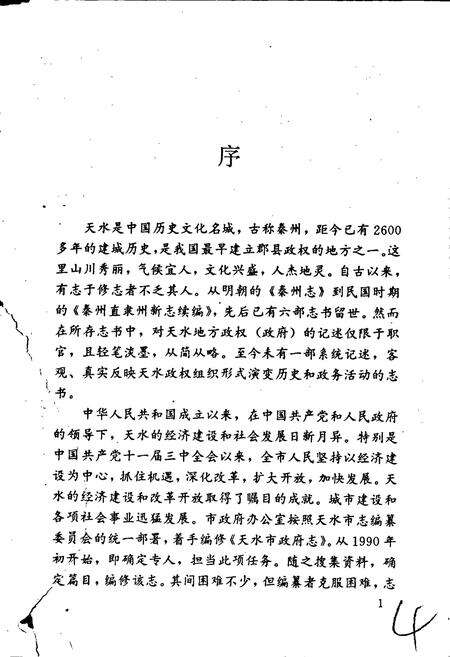 序
天水是中国历史文化名城，古称秦州，距今已有2600
多年的建城历史，是我国最早建立郡县政权的地方之一。这
里山川秀丽，气候宜人，文化兴盛，人杰地灵。自古以来，
有志于修志者不乏其人。从明朝的《秦州志》到民国时期
的《秦州直隶州新志续编》，先后已有六部志书留世。然而
在所存志书中，对天水地方政权（政府）的记述仅限于职
官，且轻笔淡墨，从简从略。至今未有一部系统记述，客
观、真实反映天水政权组织形式演变历史和政务活动的志
书。
中华人民共和国成立以来，在中国共产党和人民政府
的领导下，天水的经济建设和社会发展日新月异。特别是
中国共产党十一届三中全会以来，全市人民坚持以经济建
设为中心，抓住机遇，深化改革，扩大开放，加快发展。天
水的经济建设和改革开放取得了瞩目的成就。城市建设和
各项社会事业迅猛发展。市政府办公室按照天水市志编纂
委员会的统一部署，着手编修《天水市政府志》。从1990年
初开始，即确定专人，担当此项任务。随之搜集资料，确
定篇目，编修该志。其间困难不少，但编纂者克服困难，志
1
4